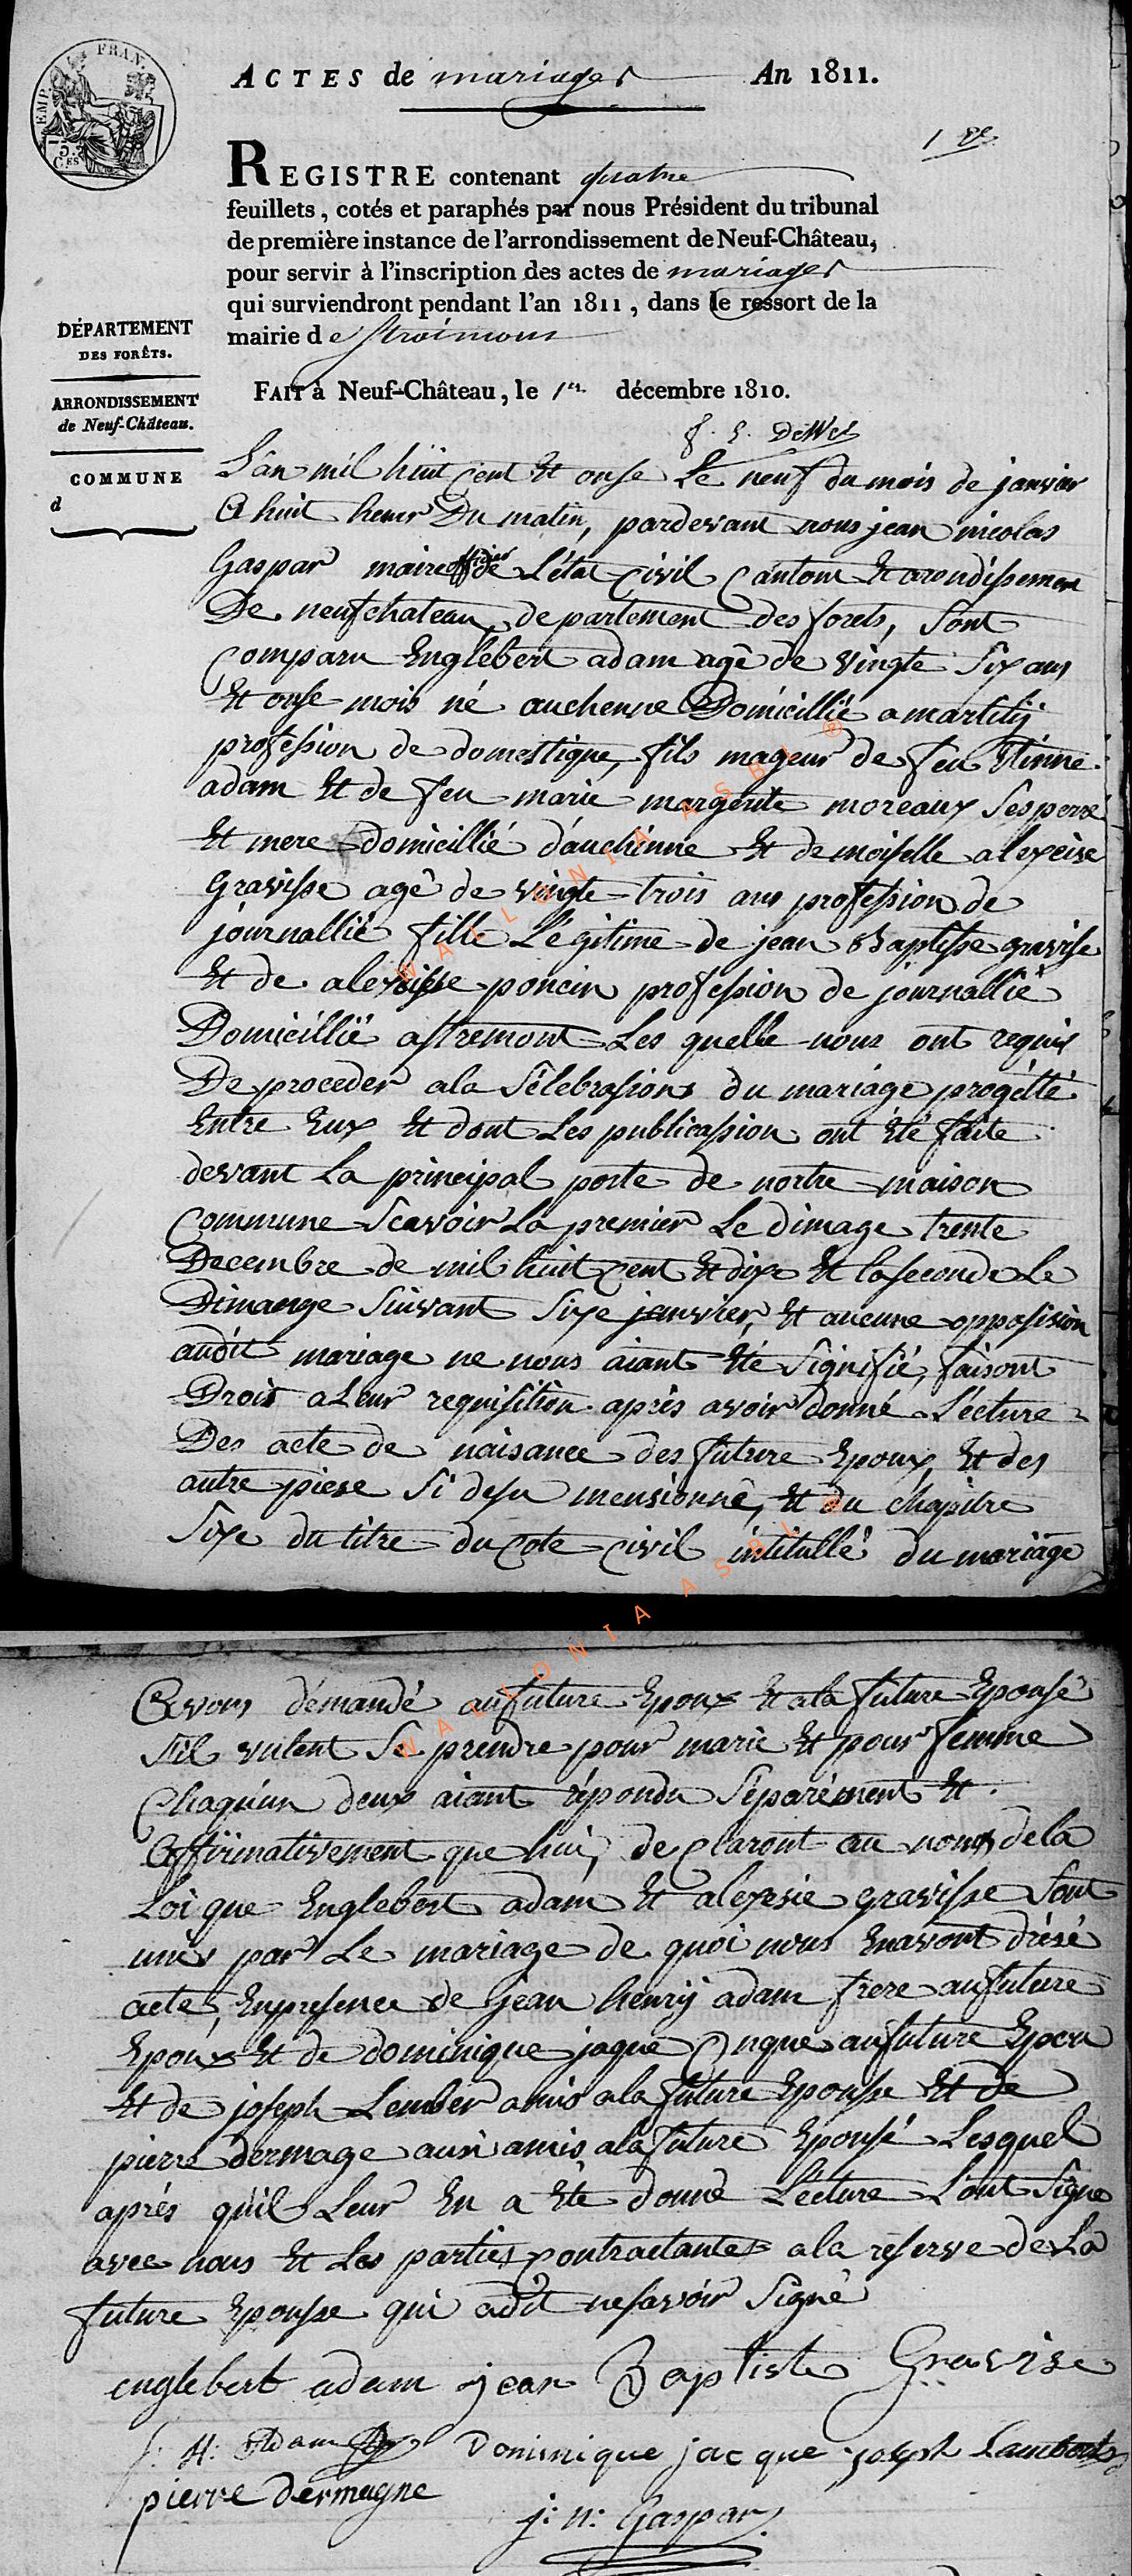 EMP. FRAN.
75.
CES
ACTES de mariages An 1811.
1 re
REGISTRE contenant quatre
feuillets, cotés et paraphés par nous Président du tribunal
de première instance de l'arrondissement de Neuf-Château,
pour servir à l'inscription des actes de mariages
qui surviendront pendant l'an 1811, dans le ressort de la
mairie de straimont
DÉPARTEMENT
DES FORÊTS.
ARRONDISSEMENT
de Neuf-Château.
COMMUNE
d
FAIT à Neuf-Château, le 1er décembre 1810.
L'an mil huit cent Et onse Le neuf du mois de janvier
A huit heur Du matin, pardevant nous jean nicolas
Gaspar maire officier de L'état civil Cantont Et arondissemen
De neufchateau, departement des forets, sont
comparu Englebert adam agê de vingte six ans
Et onse mois né auchenne Domicillié a martilij
profession de domestique, fils mageur de feu Etinne
adam Et de feu marie margerite moreaux ses perre
Et mere domicillié d'auchinne Et demoiselle alexcise
gravisse agê de vingte trois ans profession de
journallié fille Légitime de jean Baptisse gravisse
Et de alexcisse poncin profession de journallié
Domicillié astremont Les quelle nous ont requis
De proceder ala sélébrasions du mariage progétté
Entre Eux Et dont Les publicassion ont été faite
devant La principal porte de nortre maison
Commune scavoir La premier Le dimage trente
Decembre de mil huit cent Et dixe Et la seconde Le
Dimange suivant sixe janvier, Et aucune opposision
audit mariage ne nous aiant Eté signifié, faisont
Droit a Leur requisition après avoir donné Lécture
Des acte de naisance des future Epoux, Et des
autre piese si desu mensionnê, Et du chapitre
sixe du titre du Cote civil intitullé du mariage
Avons démandé au future Epoux Et ala future Epouse
s'il vulent se prendre pour marie Et pour femme
Chaqu'un deux aiant répondu séparément Et
Affirmativement que hui, declaront au nom de la
Loi que Englebert adam Et alexsie gravisse sont
unis par Le mariage de quoi nous En avont drésé
acte, En presence de jean henrij adam frere au future
Epoux Et de dominique jaque onque au future Epou
Et de joseph Lember amis ala future Epouse Et de
pierre dermage ausi amis ala future Epouse Lesquel
aprés qu'il Leur En a Eté donné Lécture L'ont signe
avec nous Et Les parties contractantes ala réserve de La
future Epousse qui adit ne savoir signé
englebert adam jean Baptiste Gravise
J: H: Adam Dominique jacque joseph Lambert
pierre Dermagne
j: n: Gaspar
WALLONIA ASBL ®
WALLONIA ASBL ®